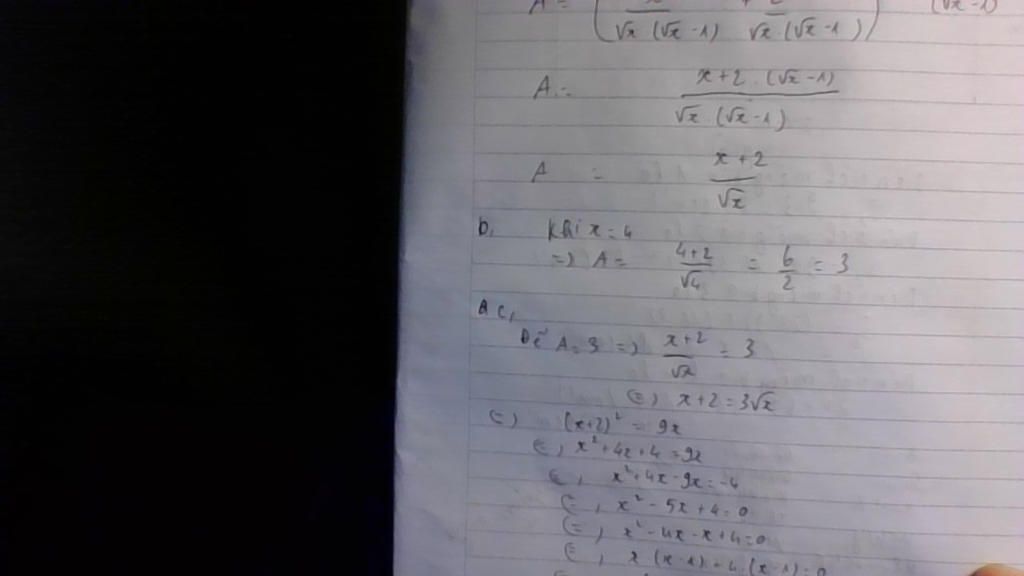 A = ( / √x.(√x-1) + 2 / √x.(√x-1) ) (√x-1)
A = x+2.(√x-1) / √x.(√x-1)
A = x+2 / √x
b, Khi x = 4
=) A = 4+2 / √4 = 6 / 2 = 3
c,
Để A = 3 =) x+2 / √x = 3
(=) x+2 = 3√x
(=) (x+2)² = 9x
(=) x²+4x+4 = 9x
(=) x²+4x-9x = -4
(=) x²-5x+4 = 0
(=) x²-4x-x+4 = 0
(=) x(x-1)-4.(x-1) = 0